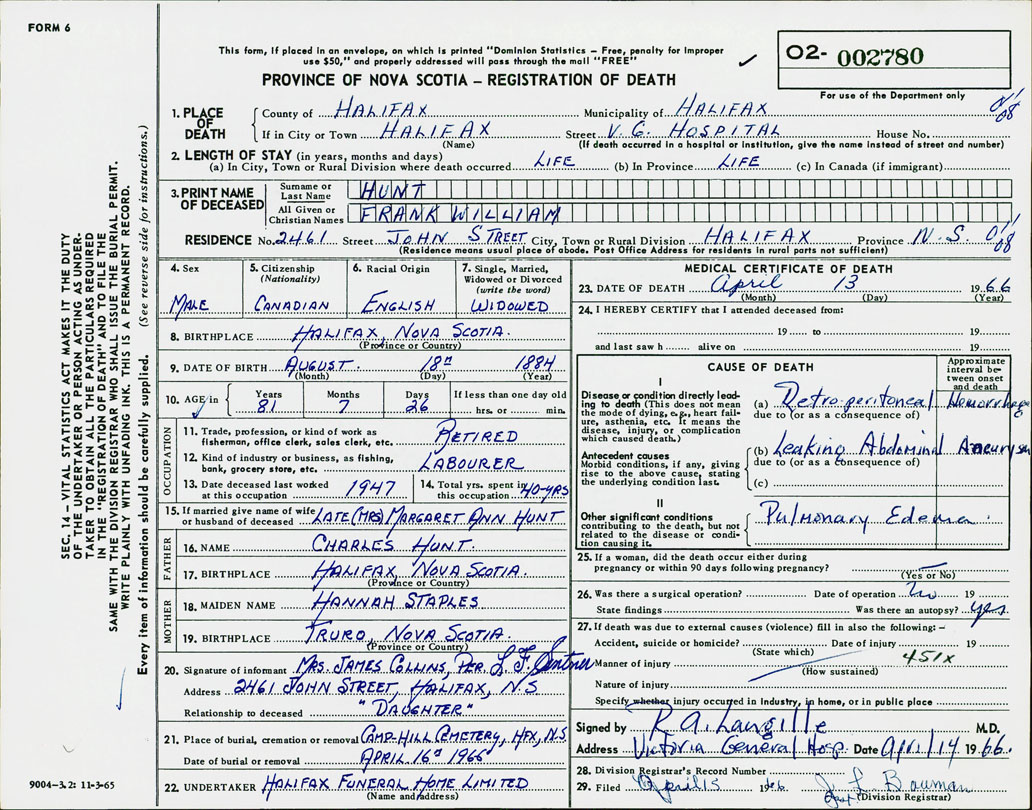 FORM 6
This form, if placed in an envelope, on which is printed "Dominion Statistics – Free, penalty for improper
use $50," and properly addressed will pass through the mail "FREE"
PROVINCE OF NOVA SCOTIA – REGISTRATION OF DEATH
02- 002780
For use of the Department only
1. PLACE OF DEATH
County of HALIFAX Municipality of HALIFAX
If in City or Town HALIFAX Street V. G. HOSPITAL House No.
(Name) (If death occurred in a hospital or institution, give the name instead of street and number)
2. LENGTH OF STAY (in years, months and days)
(a) In City, Town or Rural Division where death occurred LIFE (b) In Province LIFE (c) In Canada (if immigrant)
3. PRINT NAME OF DECEASED
Surname or Last Name HUNT
All Given or Christian Names FRANK WILLIAM
RESIDENCE No. 2461 Street JOHN STREET City, Town or Rural Division HALIFAX Province N.S. 01/08
(Residence means usual place of abode. Post Office Address for residents in rural parts not sufficient)
4. Sex
MALE
5. Citizenship
(Nationality)
CANADIAN
6. Racial Origin
ENGLISH
7. Single, Married,
Widowed or Divorced
(write the word)
WIDOWED
8. BIRTHPLACE HALIFAX, NOVA SCOTIA.
(Province or Country)
9. DATE OF BIRTH AUGUST 18th 1884
(Month) (Day) (Year)
10. AGE in Years 81 Months 7 Days 26 If less than one day old
hrs. or min.
OCCUPATION
11. Trade, profession, or kind of work as
fisherman, office clerk, sales clerk, etc. RETIRED
12. Kind of industry or business, as fishing,
bank, grocery store, etc. LABOURER
13. Date deceased last worked
at this occupation 1947
14. Total yrs. spent in
this occupation 40-YRS
15. If married give name of wife
or husband of deceased LATE (MRS) MARGARET ANN HUNT
FATHER
16. NAME CHARLES HUNT.
17. BIRTHPLACE HALIFAX, NOVA SCOTIA.
(Province or Country)
MOTHER
18. MAIDEN NAME HANNAH STAPLES
19. BIRTHPLACE TRURO, NOVA SCOTIA.
(Province or Country)
20. Signature of informant MRS. JAMES COLLINS, PER. L. F.
Address 2461 JOHN STREET, HALIFAX, N.S
Relationship to deceased "DAUGHTER"
21. Place of burial, cremation or removal CAMP-HILL CEMETERY, HFX, N.S.
Date of burial or removal APRIL 16th 1966
22. UNDERTAKER HALIFAX FUNERAL HOME LIMITED
(Name and address)
MEDICAL CERTIFICATE OF DEATH
23. DATE OF DEATH April 13 1966
(Month) (Day) (Year)
24. I HEREBY CERTIFY that I attended deceased from:
19 to 19
and last saw h alive on 19
CAUSE OF DEATH
Approximate
interval be-
tween onset
and death
I
Disease or condition directly lead-
ing to death (This does not mean
the mode of dying, e.g., heart fail-
ure, asthenia, etc. It means the
disease, injury, or complication
which caused death.)
(a) Retro-peritoneal Hemorrhage
due to (or as a consequence of)
Antecedent causes
Morbid conditions, if any, giving
rise to the above cause, stating
the underlying condition last.
(b) Leaking Abdominal Aneurysm
due to (or as a consequence of)
(c)
II
Other significant conditions
contributing to the death, but not
related to the disease or condi-
tion causing it.
Pulmonary Edema.
25. If a woman, did the death occur either during
pregnancy or within 90 days following pregnancy?
(Yes or No)
26. Was there a surgical operation? Date of operation no 19
State findings Was there an autopsy? yes
27. If death was due to external causes (violence) fill in also the following: –
Accident, suicide or homicide? Date of injury 19
(State which)
Manner of injury 451X
(How sustained)
Nature of injury
Specify whether injury occurred in industry, in home, or in public place
Signed by R. A. Langille M.D.
Address Victoria General Hosp. Date April 14 1966.
28. Division Registrar's Record Number
29. Filed April 15 1966 L. Bauman
(Division Registrar)
SEC. 14 – VITAL STATISTICS ACT MAKES IT THE DUTY
OF THE UNDERTAKER OR PERSON ACTING AS UNDER-
TAKER TO OBTAIN ALL THE PARTICULARS REQUIRED
IN THE "REGISTRATION OF DEATH" AND TO FILE THE
SAME WITH THE DIVISION REGISTRAR WHO SHALL ISSUE THE BURIAL PERMIT.
WRITE PLAINLY WITH UNFADING INK. THIS IS A PERMANENT RECORD.
Every item of information should be carefully supplied. (See reverse side for instructions.)
9004-3.2: 11-3-65